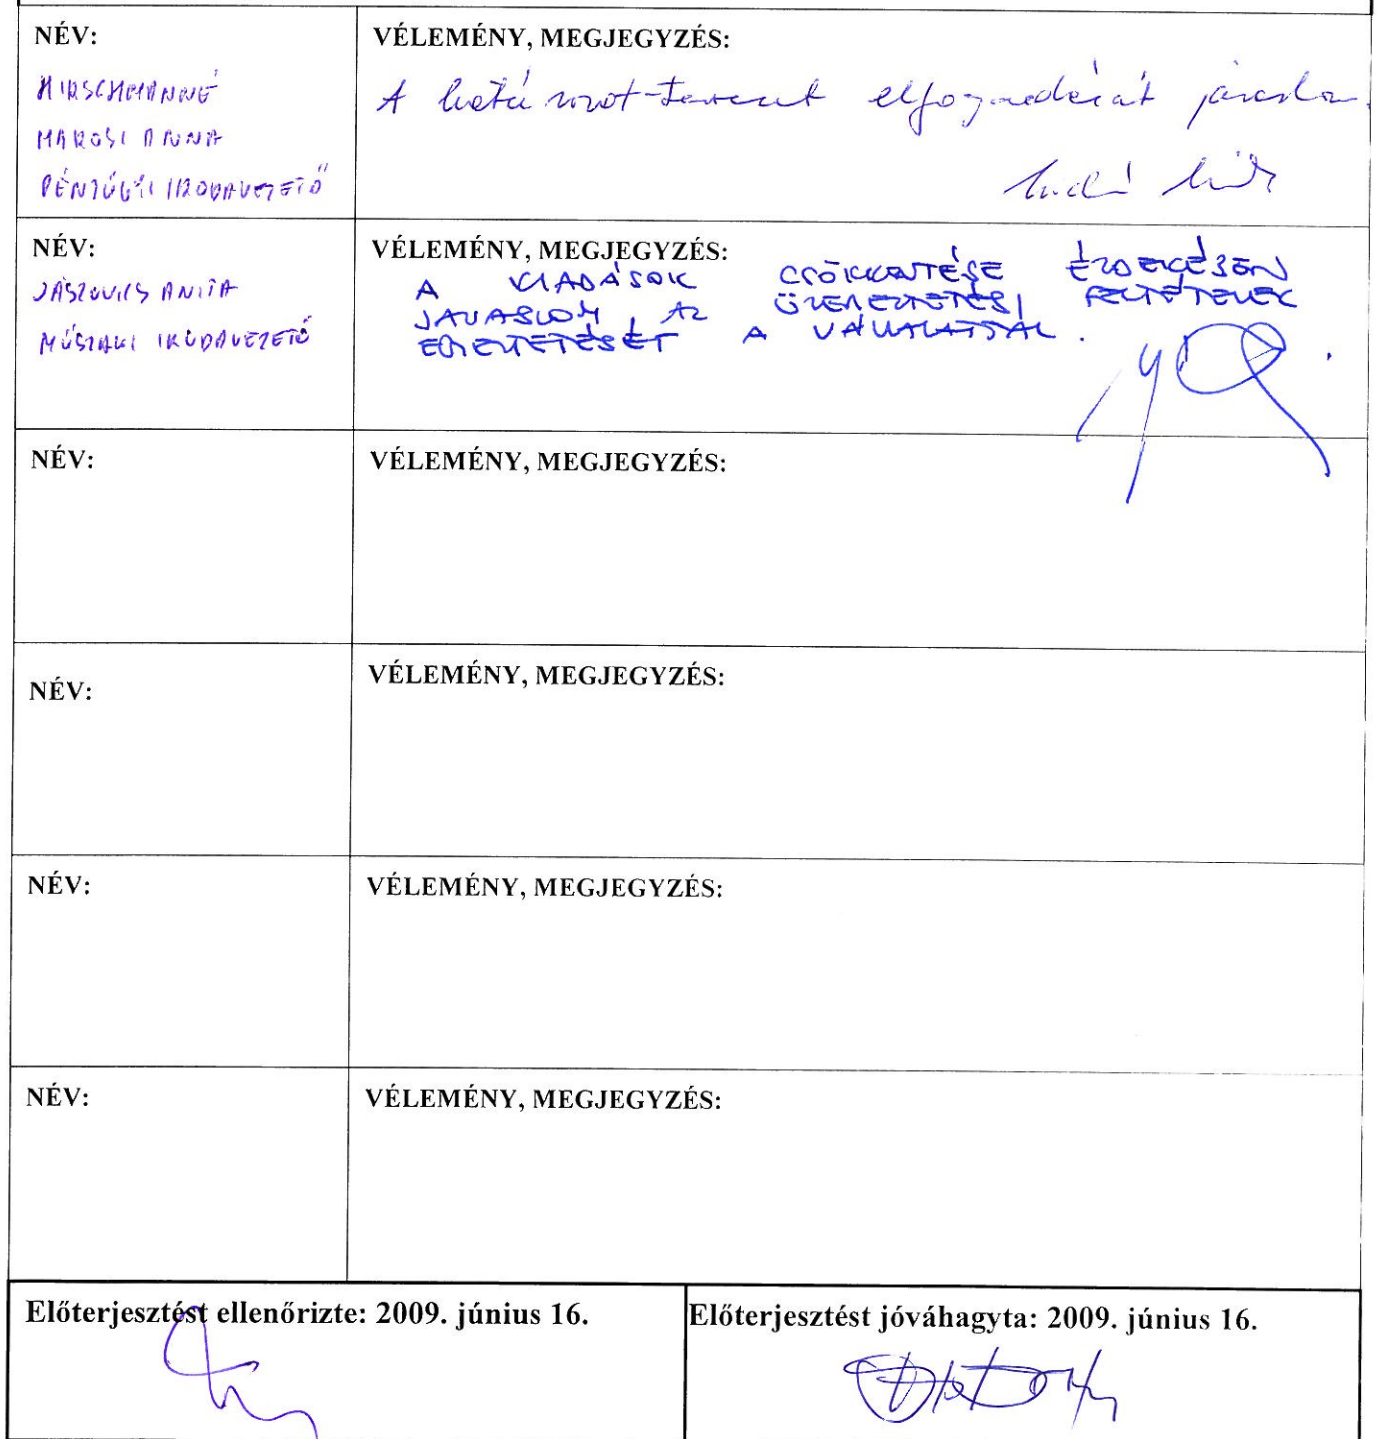 NÉV:
VÉLEMÉNY, MEGJEGYZÉS:
HIRSCHMANNÉ
MAROSI ANNA
PÉNZÜGYI IRODAVEZETŐ
A határozat-tervezet elfogadását javaslom.
NÉV:
VÉLEMÉNY, MEGJEGYZÉS:
JÁSZOVICS ANITA
MŰSZAKI IRODAVEZETŐ
A KIADÁSOK CSÖKKENTÉSE ÉRDEKÉBEN
JAVASLOM AZ ÜZEMELTETÉSI FELTÉTELEK
EGYEZTETÉSÉT A VÁLLALATTAL.
NÉV:
VÉLEMÉNY, MEGJEGYZÉS:
NÉV:
VÉLEMÉNY, MEGJEGYZÉS:
NÉV:
VÉLEMÉNY, MEGJEGYZÉS:
NÉV:
VÉLEMÉNY, MEGJEGYZÉS:
Előterjesztést ellenőrizte: 2009. június 16.
Előterjesztést jóváhagyta: 2009. június 16.